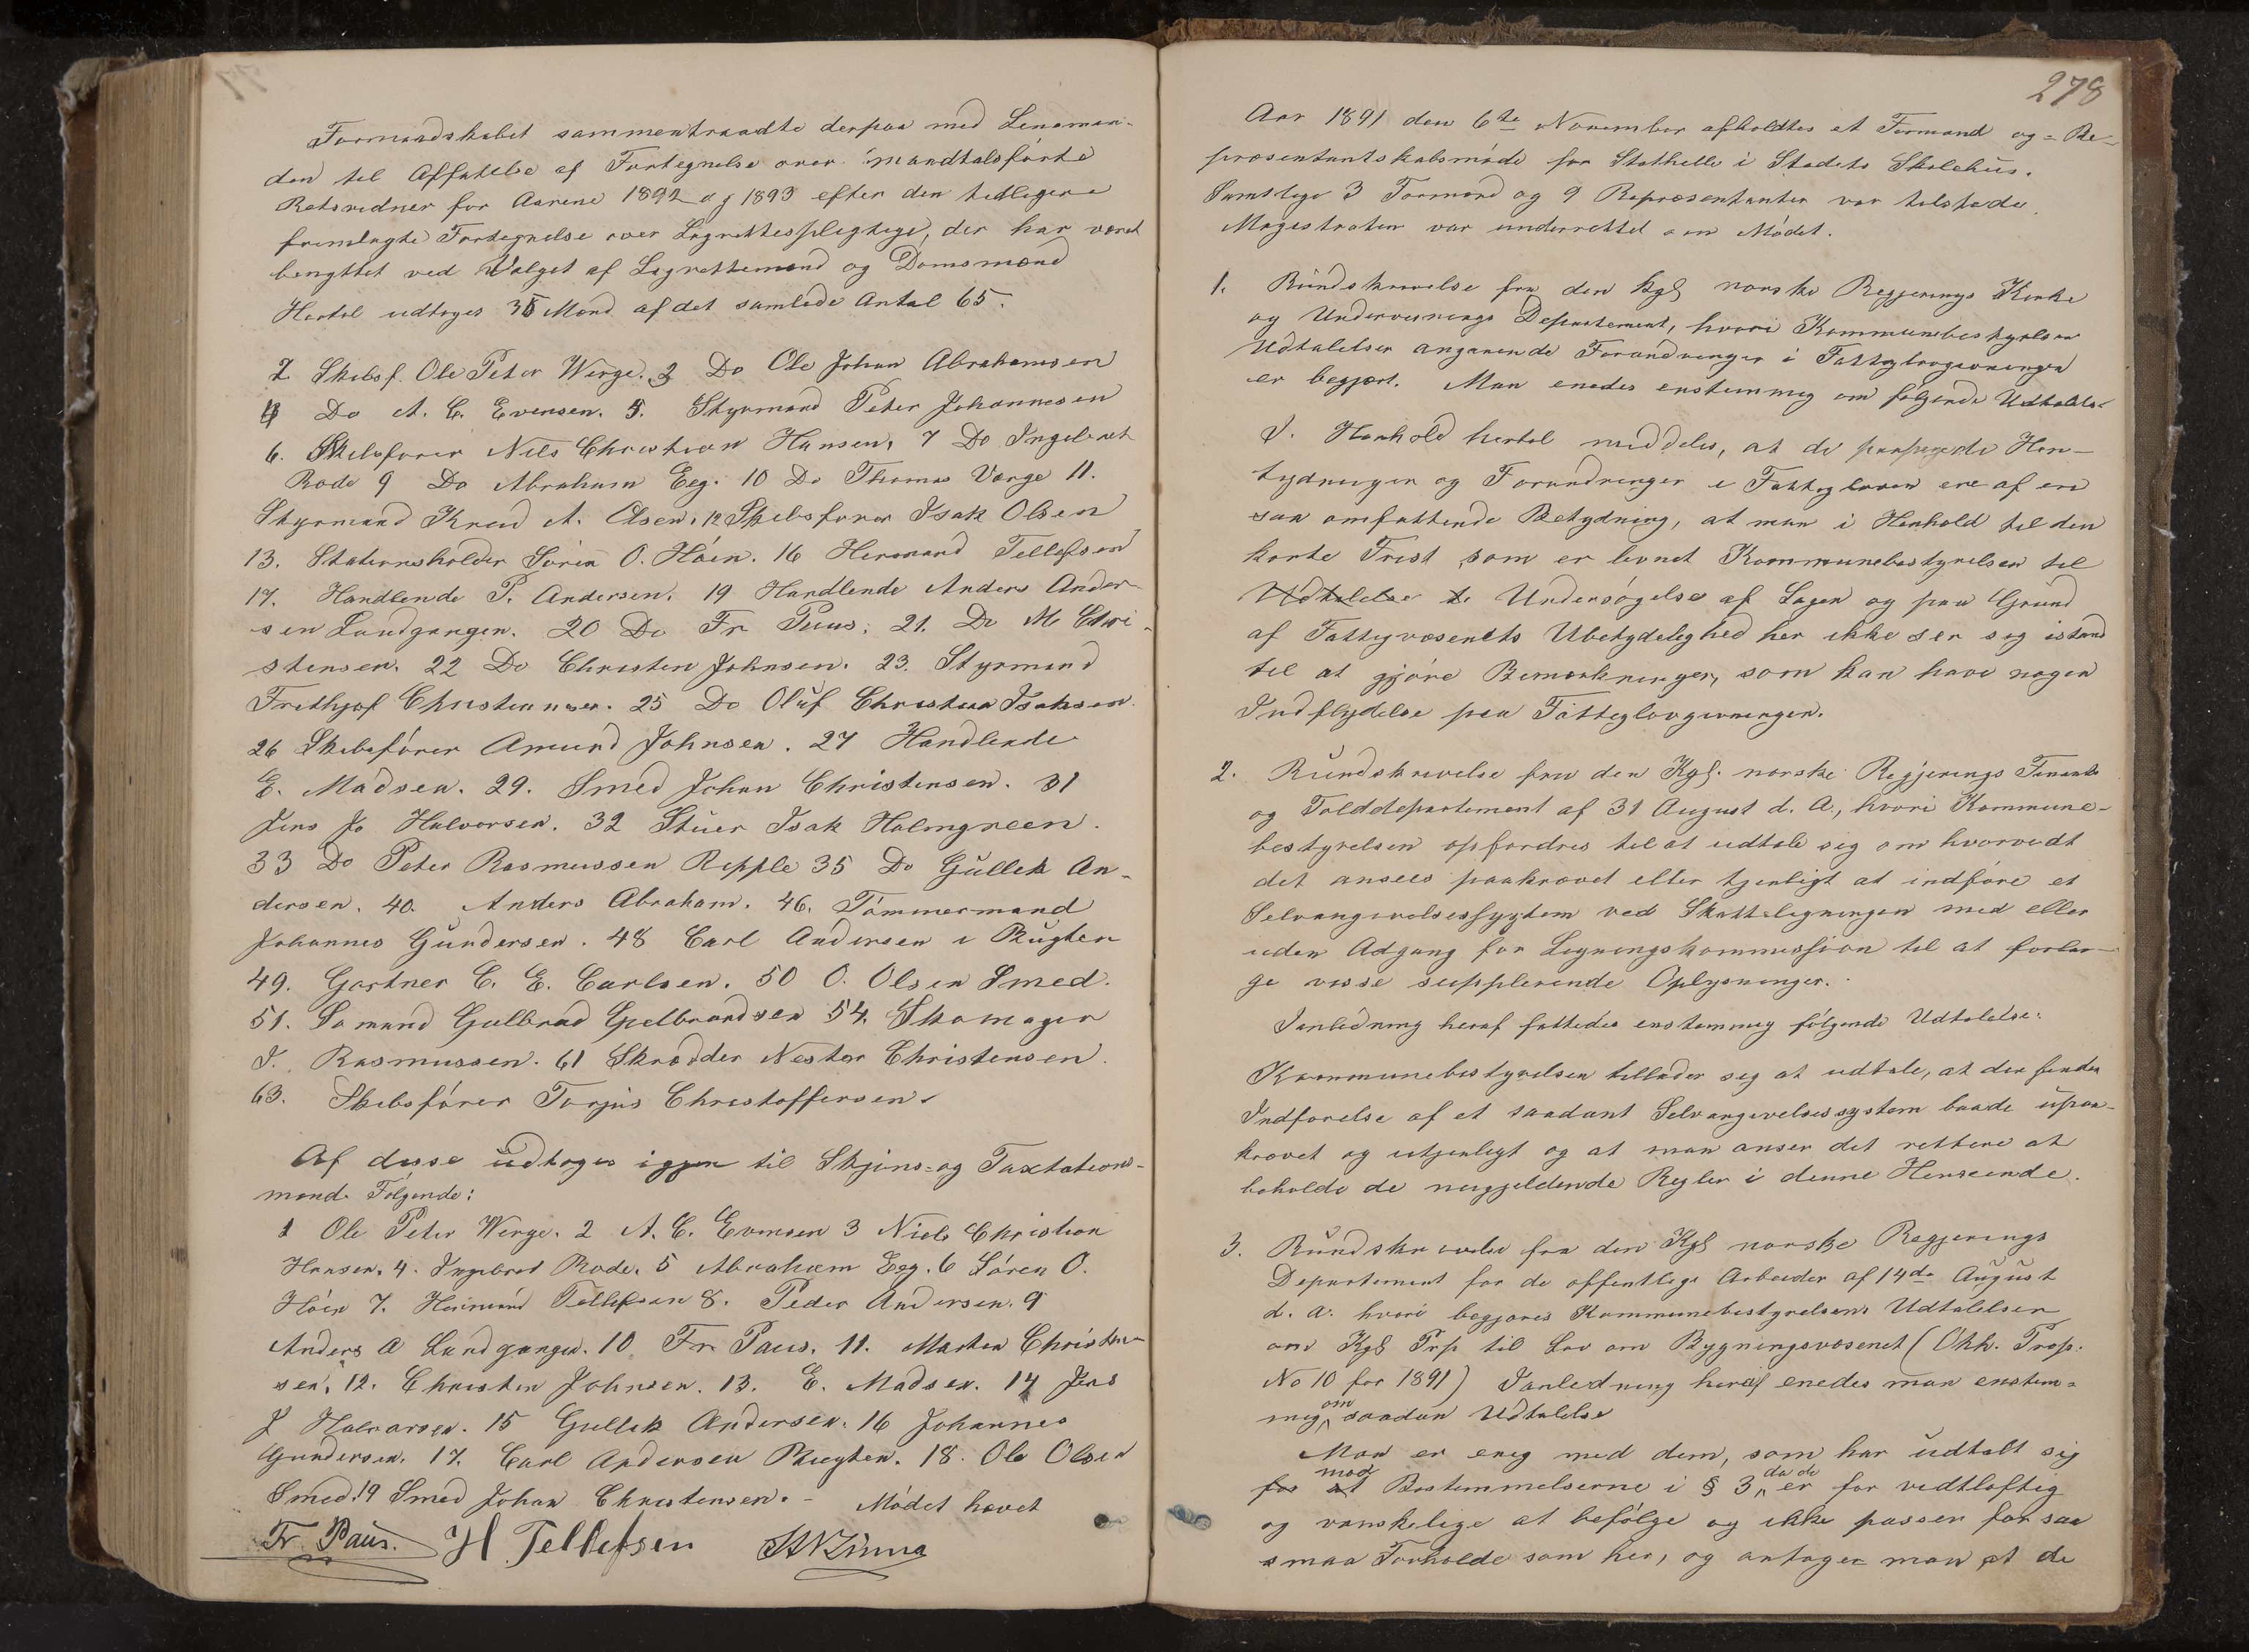 Formandskabet sammentraadte derpaa med Lensman-
den til Affatelse af Fortegnelse over mandtalsførte
Retsvidner for Aarene 1892 og 1893 efter den tidligere
fremlagte Fortegnelse over Lagrettespligtige, der har været
benyttet ved Valget af Lagrettemænd og Domsmænd
Hertil udtoges 35 Mænd af det samlede Antal 65.
2 Skibsf. Ole Peter Werge. 3 Do Ole Johan Abrahamsen
4 Do A. C. Evensen. 5. Styrmand Peter Johannesen
6. Skibsfører Nils Christian Hansen, 7 Do Ingebret
Rode 9 Do Abraham Eeg. 10 Do Thomas Varge 11.
Styrmand Knud A. Olsen. 12 Skibsfører Isak Olsen
13. Stationsholder Sören O. Höen. 16 Hermand Tellefsen
17. Handlende P. Andersen. 19 Handlende Anders Ander-
sen Landgangen. 20 Do Fr Paus. 21. Do M Chri-
stensen. 22 Do Christen Johnsen. 23. Styrmand
Frithjof Christensen. 25 Do Oluf Christian Isaksen.
26 Skibsfører Amund Johnsen. 27 Handlende
E. Madsen. 29. Smed Johan Christensen. 31
Jens Jo Halvorsen. 32 Stuer Isak Holmgreen.
33 Do Peter Rasmussen Ripple 35 Do Gullek An-
dersen. 40. Anders Abraham. 46. Tømmermand
Johannes Gundersen. 48 Carl Andersen i Rugten
49. Gartner C. E. Carlsen. 50 O. Olsen Smed.
51. Sømand Gulbrand Gulbrandsen 54. Skomager
J. Rasmussen. 61 Skrædder Nestor Christensen.
63. Skibsfører Torjus Christoffersen.
Af disse udtoges igjen til Skjøns- og Taxtations-
mænd Følgende:
1 Ole Peter Werge. 2 A. C. Evensen 3 Niels Christian
Hansen. 4. Ingebret Rode. 5 Abraham Eeg. 6 Sören O.
Höen 7. Hermand Tellefsen 8. Peder Andersen. 9
Anders A Landgangen. 10. Fr. Paus. 11. Marten Christen-
sen. 12. Christen Johnsen. 13. E. Madsen. 14 Jens
J Halvorsen. 15 Gullek Andersen. 16 Johannes
Gundersen. 17. Carl Andersen Rugten. 18. Ole Olsen
Smed. 19 Smed Johan Christensen. - Mødet hævet
Fr. Paus. H Tellefsen
278
Aar 1891 den 6te November afholdtes et Formand og = Re-
præsentantskabsmøde for Stathelle i Stedets Skolehus.
Samtlige 3 Formænd og 9 Repræsentanter var tilstede.
Magistraten var underrettet om Mødet.
1. Rundskrivelse fra den Kgl norske Regjerings Kirke
og Undervisnings Departement, hvori Kommunebestyrelsen
Udtalelser angaaende Forandringer i Fattiglovgivningen
er begjært. Man enedes enstemmig om følgende Udtalelse
I. Henhold hertil meddeles, at de paapegede Hen-
tydninger og Forandringer i Fattigloven ere af en
saa omfattende Betydning, at man i Henhold til den
korte Frist som er levnet Kommunebestyrelsen til
Udtalelse Undersøgelse af Sagen og paa Grund
af Fattigvæsenets Ubetydelighed her ikke ser sig istand
til at gjøre Bemærkninger, som kan have nogen
Indflydelse paa Fattiglovgivningen.
2. Rundskrivelse fra den Kgl. norske Regjerings Finants
og Tolddepartement af 31 August d. A., hvori Kommune-
bestyrelsen opfordres til at udtale sig om hvorvidt
det ansees paakrævet eller tjenligt at indføre et
Selvangivelsessystem ved Skatteligningen med eller
uden Adgang for Ligningskommissionen til at forlan-
ge visse supplerende Oplysninger.
Ianledning heraf fattedes enstemmig følgende Udtalelse:
Kommunebestyrelsen tillader sig at udtale, at den finder
Indførelse af et saadant Selvangivelsessystem baade upaa-
krævet og utjenligt og at man anser det rettere at
beholde de nugjeldende Regler i denne Henseende.
3. Rundskrivelse fra den Kgl norske Regjerings
Departement for de offentlige Arbeider af 14de August
d. A. hvori begjæres Kommunebestyrelsens Udtalelser
om Kgl Prp til Lov om Bygningsvæsenet (Oth. Prop.
No 10 for 1891) Ianledning heraf enedes man enstem-
mig om saadan Udtalelse
Man er enig med dem, som har udtalt sig
for at mod Bestemmelserne i § 3, da de er for vidtløftig
og vanskelige at befølge og ikke passer for saa
smaa Forholde som her, og antager man at de